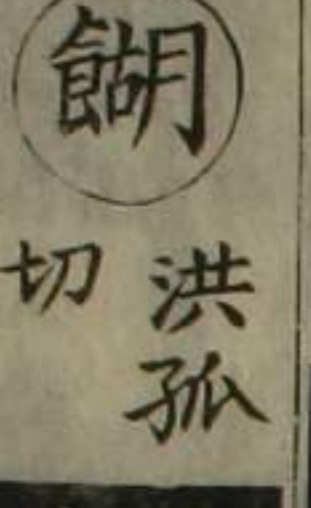 餬
洪孤
切